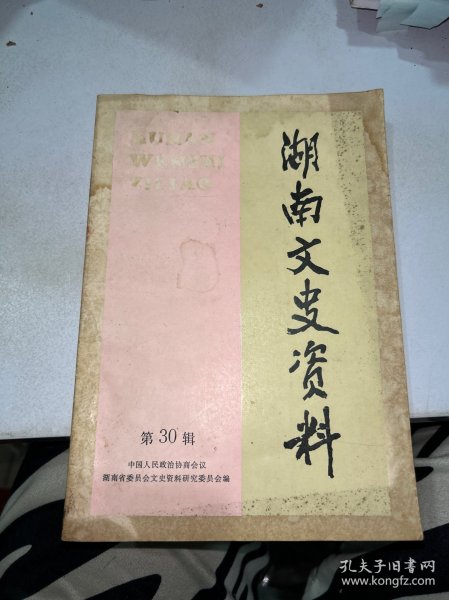 HUNAN
WENSHI
ZILIAO
湖南文史资料
第30辑
中国人民政治协商会议
湖南省委员会文史资料研究委员会编
孔夫子旧书网
www.kongfz.com